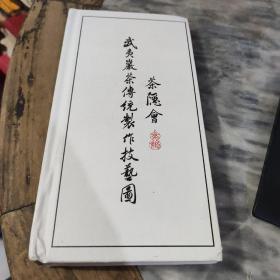 武夷巖茶傳統製作技藝圖
茶隱會